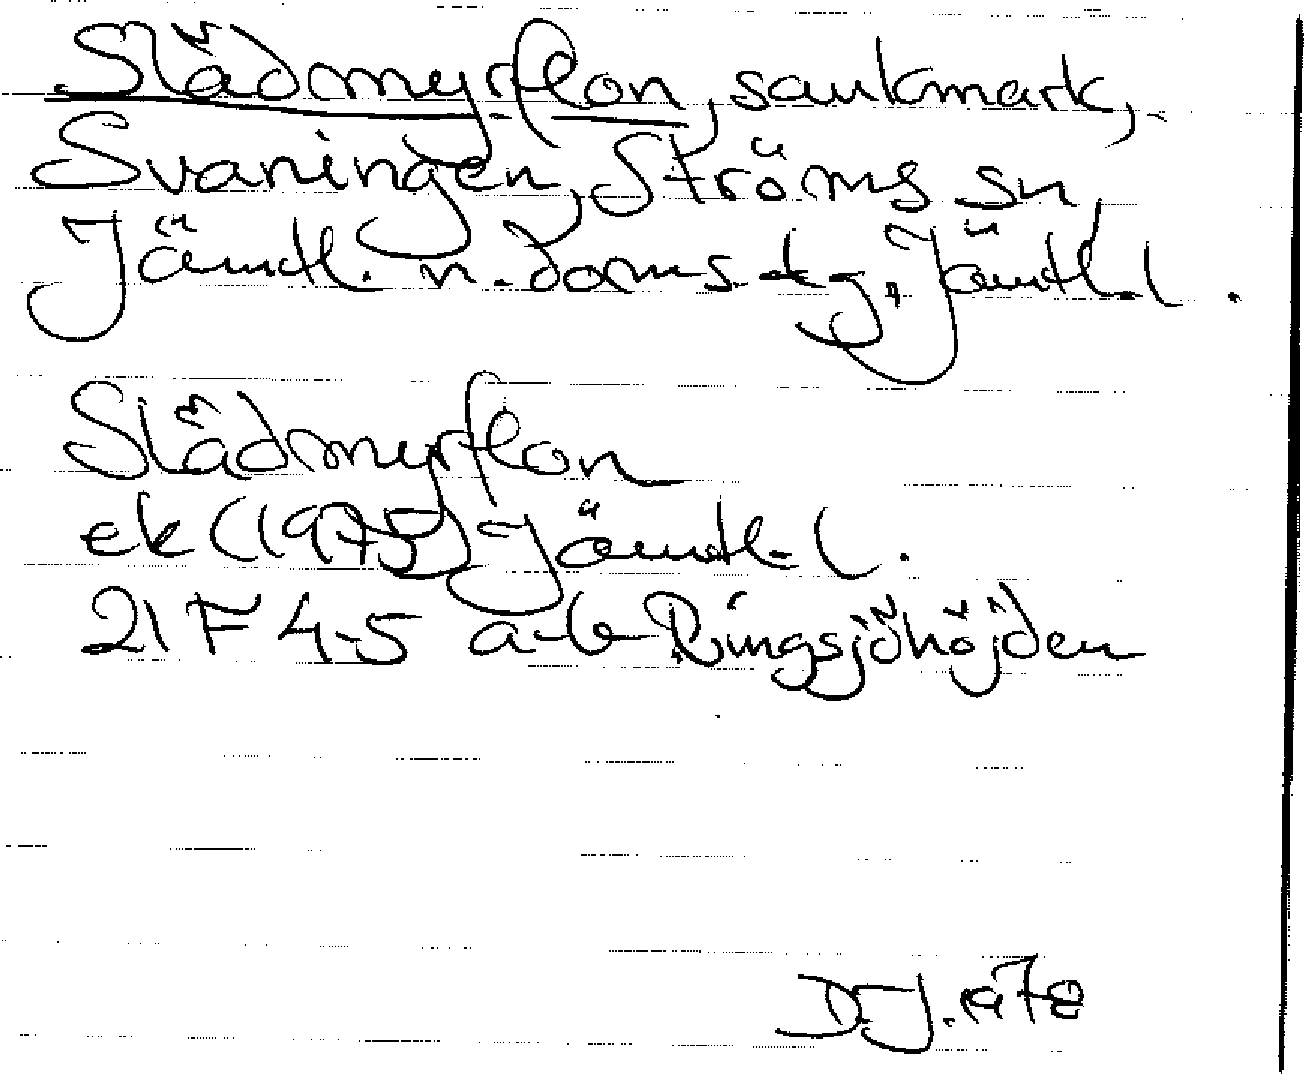 Slädmyrflon, sankmark,
Svaningen, Ströms sn
Jämtl. n. doms. tg, Jämtl. l.
Slädmyrflon
ek (1975) Jämtl. l.
21 F 4-5 a-b Ringsjöhöjden
D.J. 1978